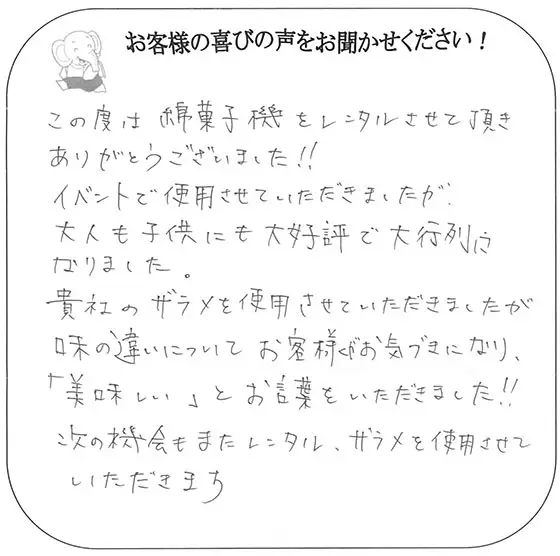 お客様の喜びの声をお聞かせください！
この度は 綿菓子機をレンタルさせて頂き
ありがとうございました!!
イベントで使用させていただきましたが、
大人も子供にも大好評で大行列に
なりました。
貴社のザラメを使用させていただきましたが
味の違いについてお客様がお気づきになり、
「美味しい」とお言葉をいただきました!!
次の機会もまたレンタル、ザラメを使用させて
いただきます